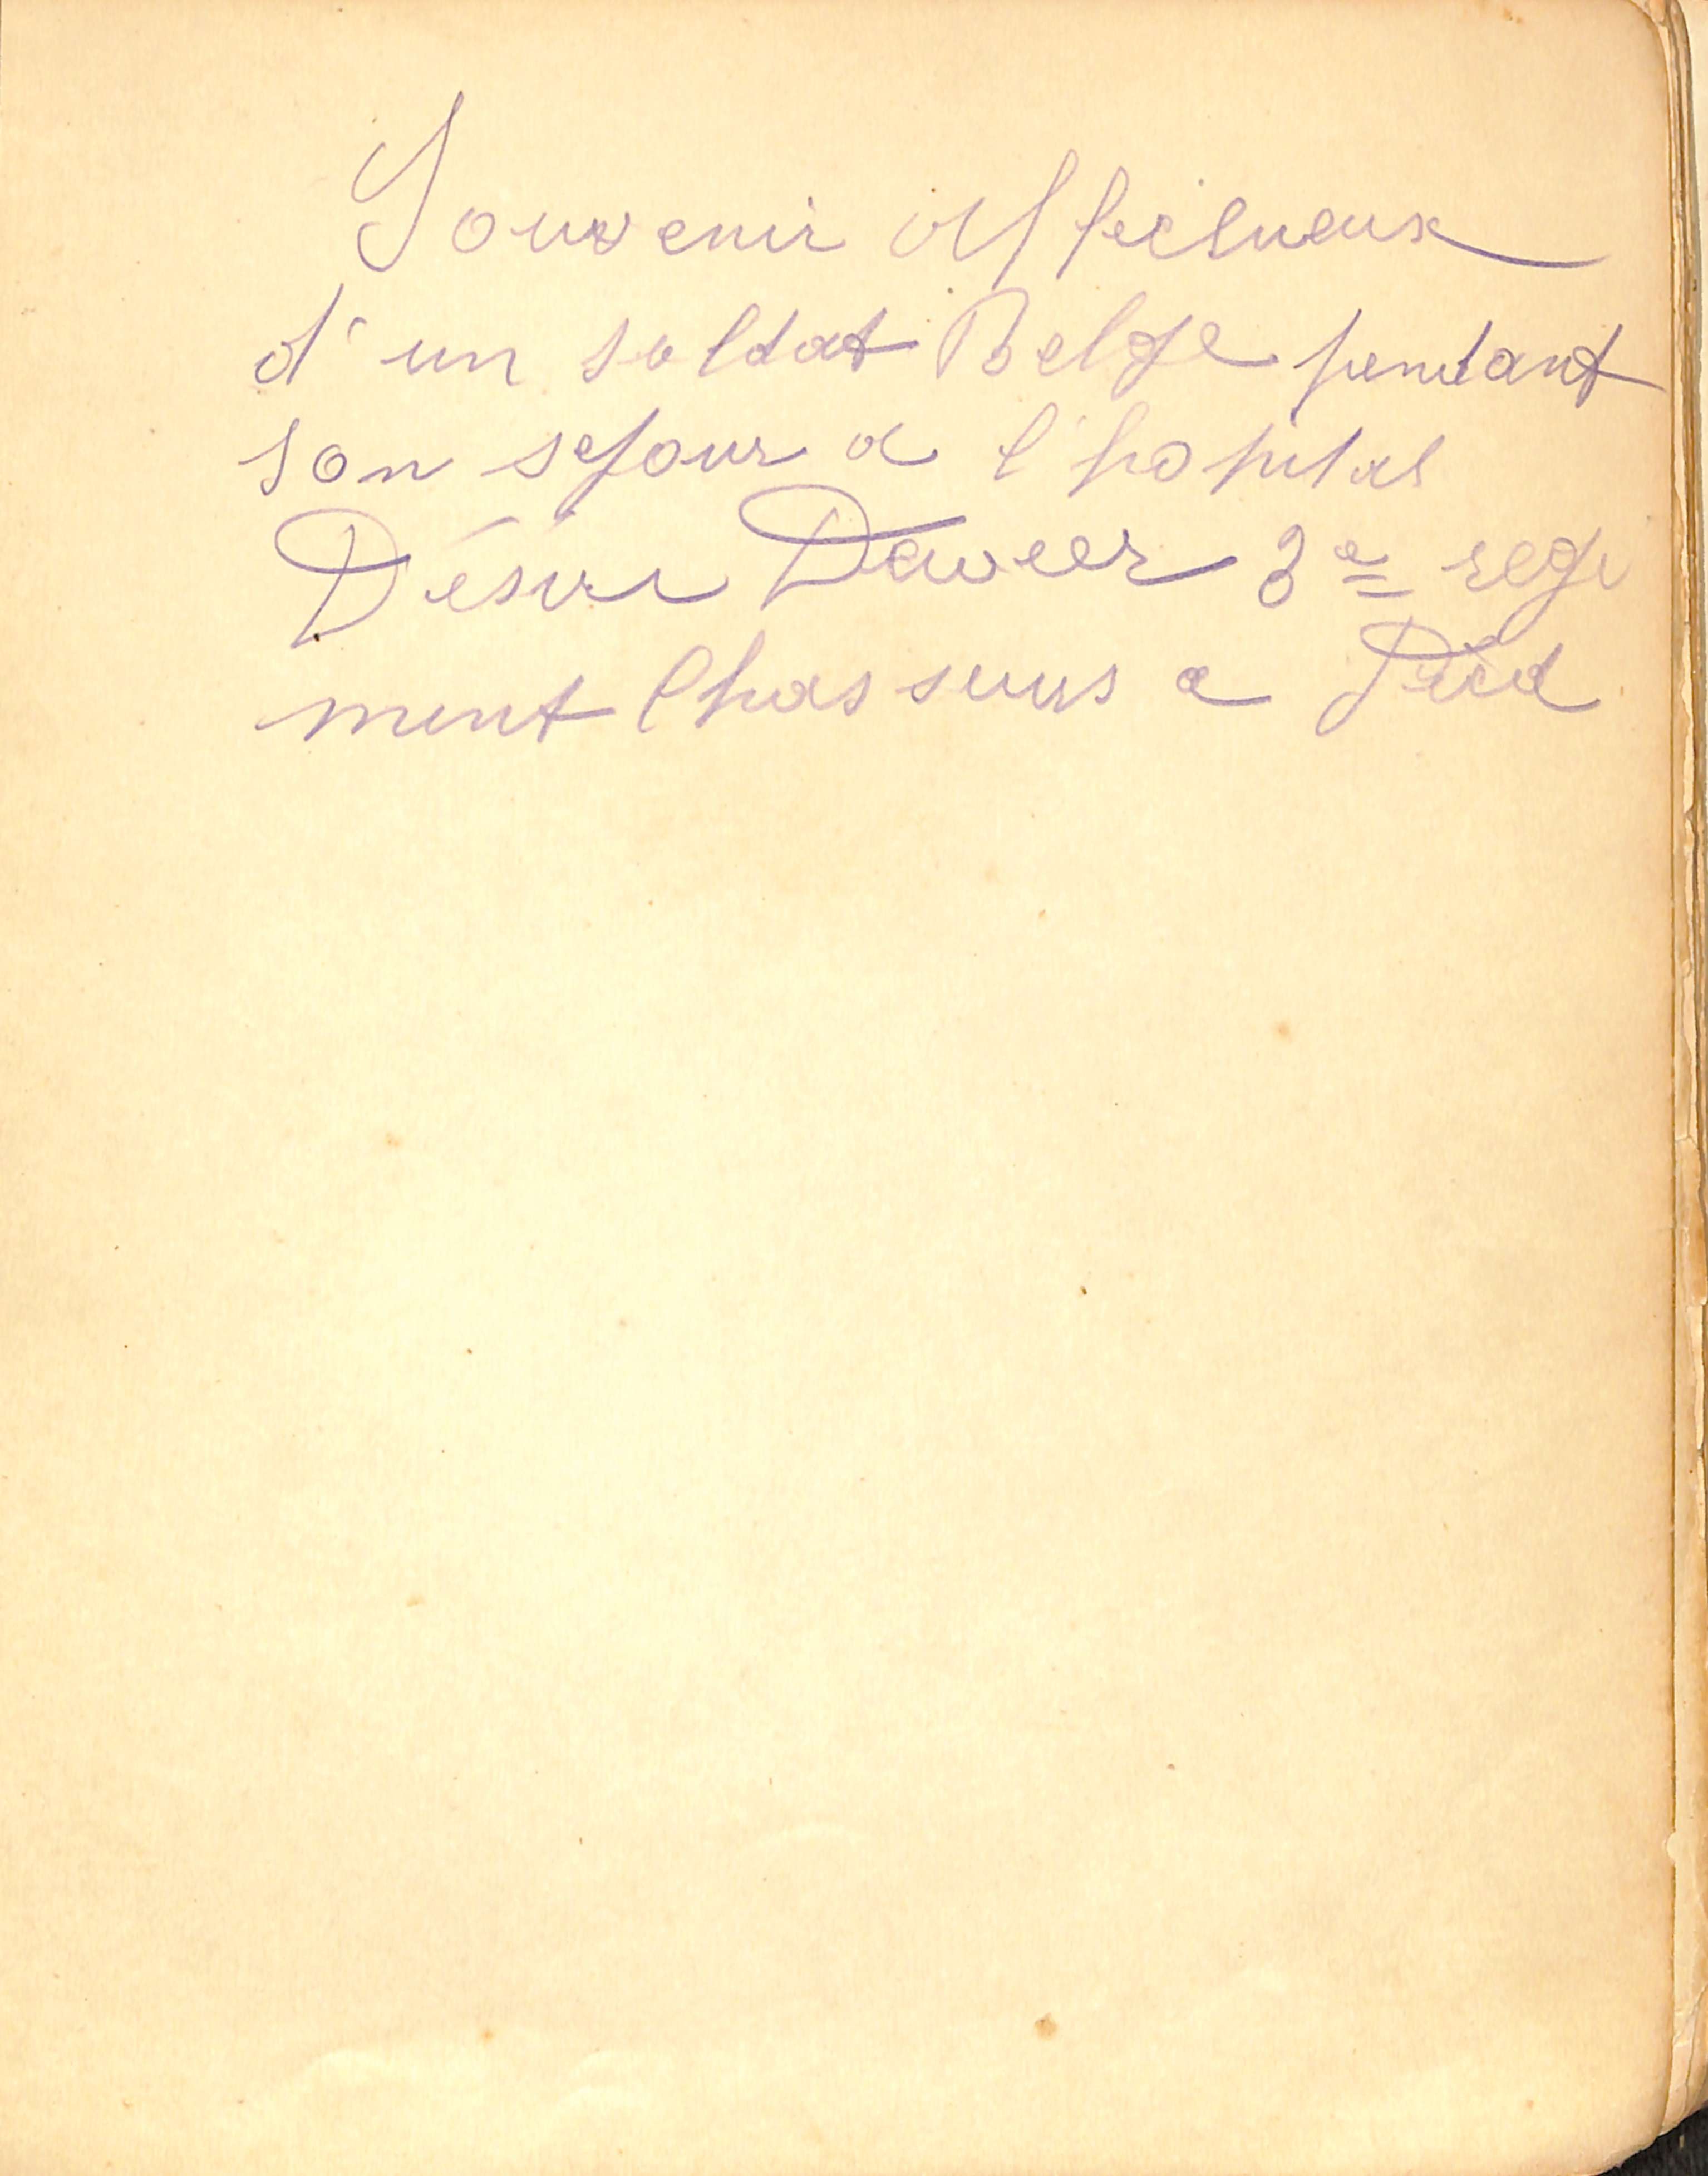 Souvenir affectueux
d'un soldat Belge pendant
son sejour a l'hopital
Désiré 3e regi
ment Chasseurs a Pied